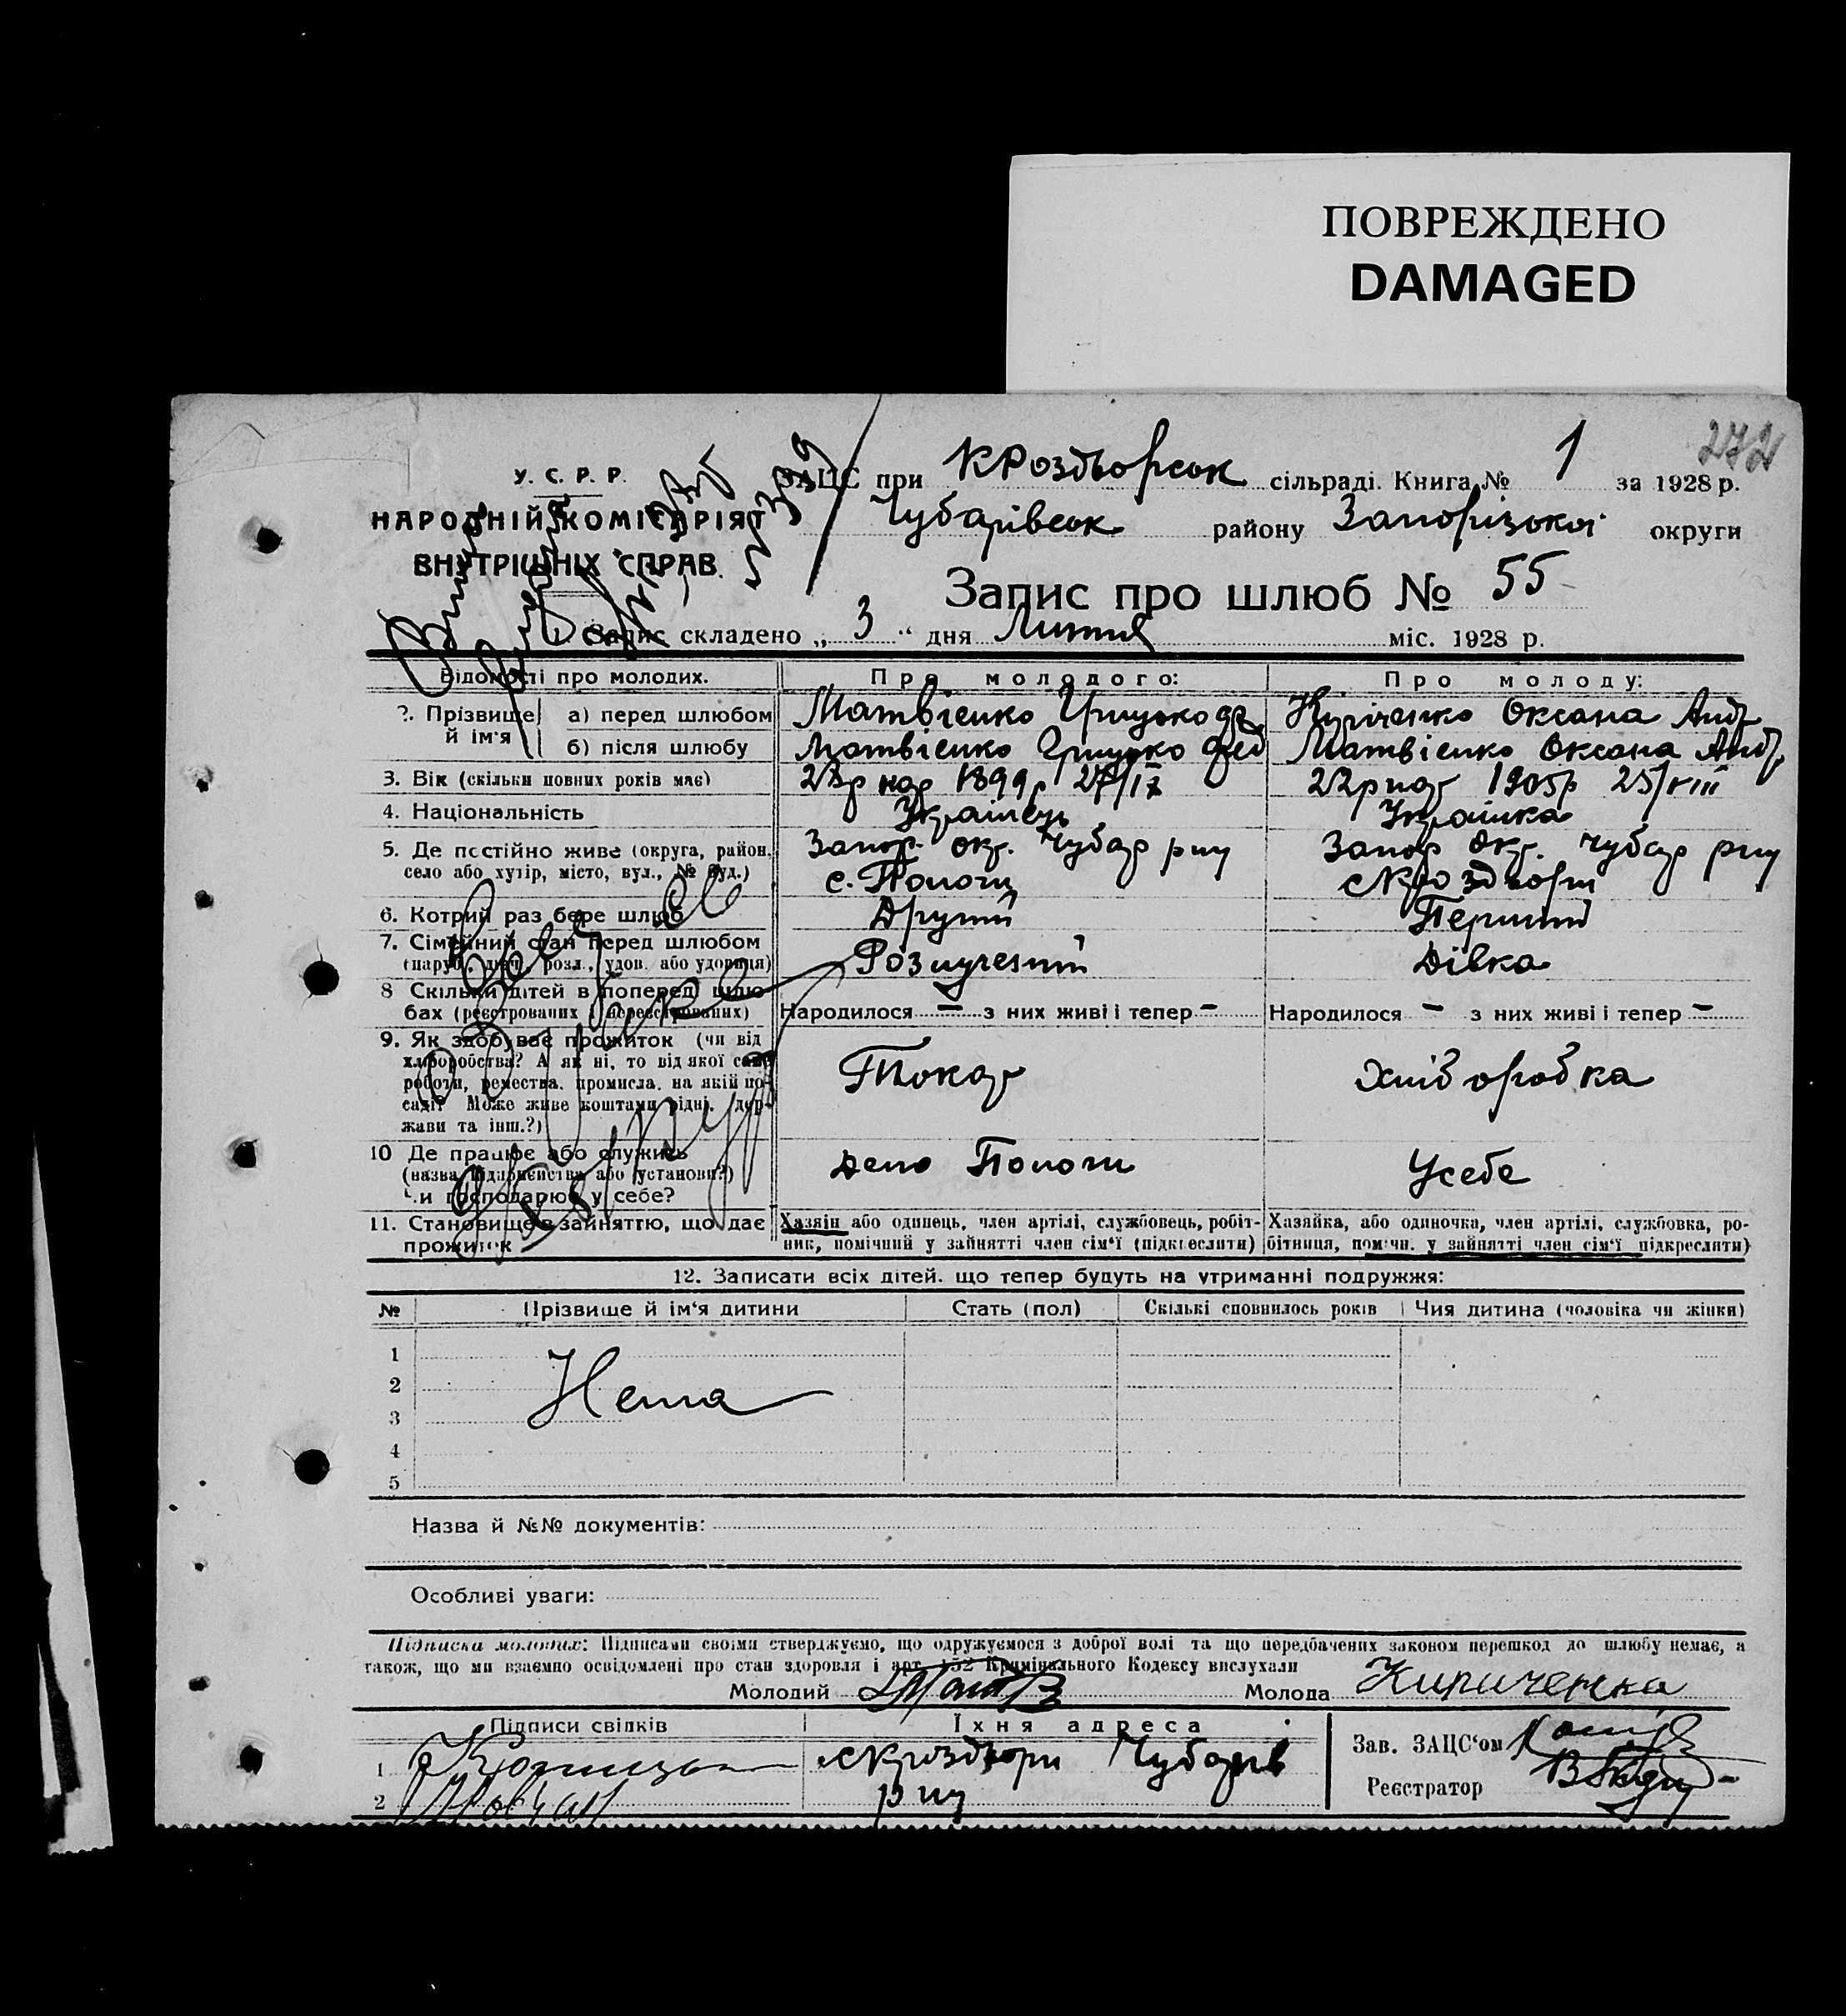 ПОВРЕЖДЕНО
DAMAGED
272
У. С. Р. Р.
НАРОДНІЙ КОМІСАРІЯТ
ВНУТРІШНІХ СПРАВ.
ЗАЦС при КРоздорськ сільраді. Книга № 1 за 1928 р.
Чубарівськ району Запорізької округи
Запис про шлюб № 55
Запис складено „ 3 “ дня Лютня міс. 1928 р.
Відомості про молодих. Про молодого: Про молоду:
2. Прізвище й ім'я
а) перед шлюбом Матвієнко Грицько Кіріченко Оксана Андр
б) після шлюбу Матвієнко Грицько Фед Матвієнко Оксана Андр
3. Вік (скільки повних років має) 28р нар 1899р 27/IX 22р нар 1905р 25/VIII
4. Національність Українець Українка
5. Де постійно живе (округа, район, село або хутір, місто, вул., № буд.)
Запор. окр. Чубар рну с. Пологи
Запор окр. Чубар рну
6. Котрий раз бере шлюб Другий Перший
7. Сімейний стан перед шлюбом Дівка
(паруб., дівч., розл., удов. або удовиця)
8 Скільки дітей в поперед. шлюбах (реєстрованих і нереєстрованих)
Народилося — з них живі і тепер — Народилося — з них живі і тепер —
9. Як здобуває прожиток (чи від хліборобства? А як ні, то від якої саме роботи, ремества, промисла, на якій посаді? Може живе коштами рідні, держави та інш.?)
Токар Хліборобка
10 Де працює або служить
(назва підприємства або установи?)
Чи господарює у себе?
Депо Пологи Усебе
11. Становище в зайняттю, що дає прожиток
Хазяїн або одинець, член артілі, службовець, робітник, помічний у зайнятті член сім'ї (підкреслити)
Хазяйка, або одиночка, член артілі, службовка, робітниця, помічн. у зайнятті член сім'ї підкреслити)
12. Записати всіх дітей, що тепер будуть на утриманні подружжя:
№ Прізвище й ім'я дитини Стать (пол) Скількі сповнилось років Чия дитина (чоловіка чи жінки)
1
2 Нема
3
4
5
Назва й №№ документів:
Особливі уваги:
Підписка молодих: Підписами своїми стверджуємо, що одружуємося з доброї волі та що передбачених законом перешкод до шлюбу немає, а
також, що ми взаємно освідомлені про стан здоровля і арт. 152 Кримінального Кодексу вислухали
Молодий Молода Кириченка
Підписи свідків Їхня адреса
1 Чубарів
2 рну
Зав. ЗАЦС'ом
Реєстратор